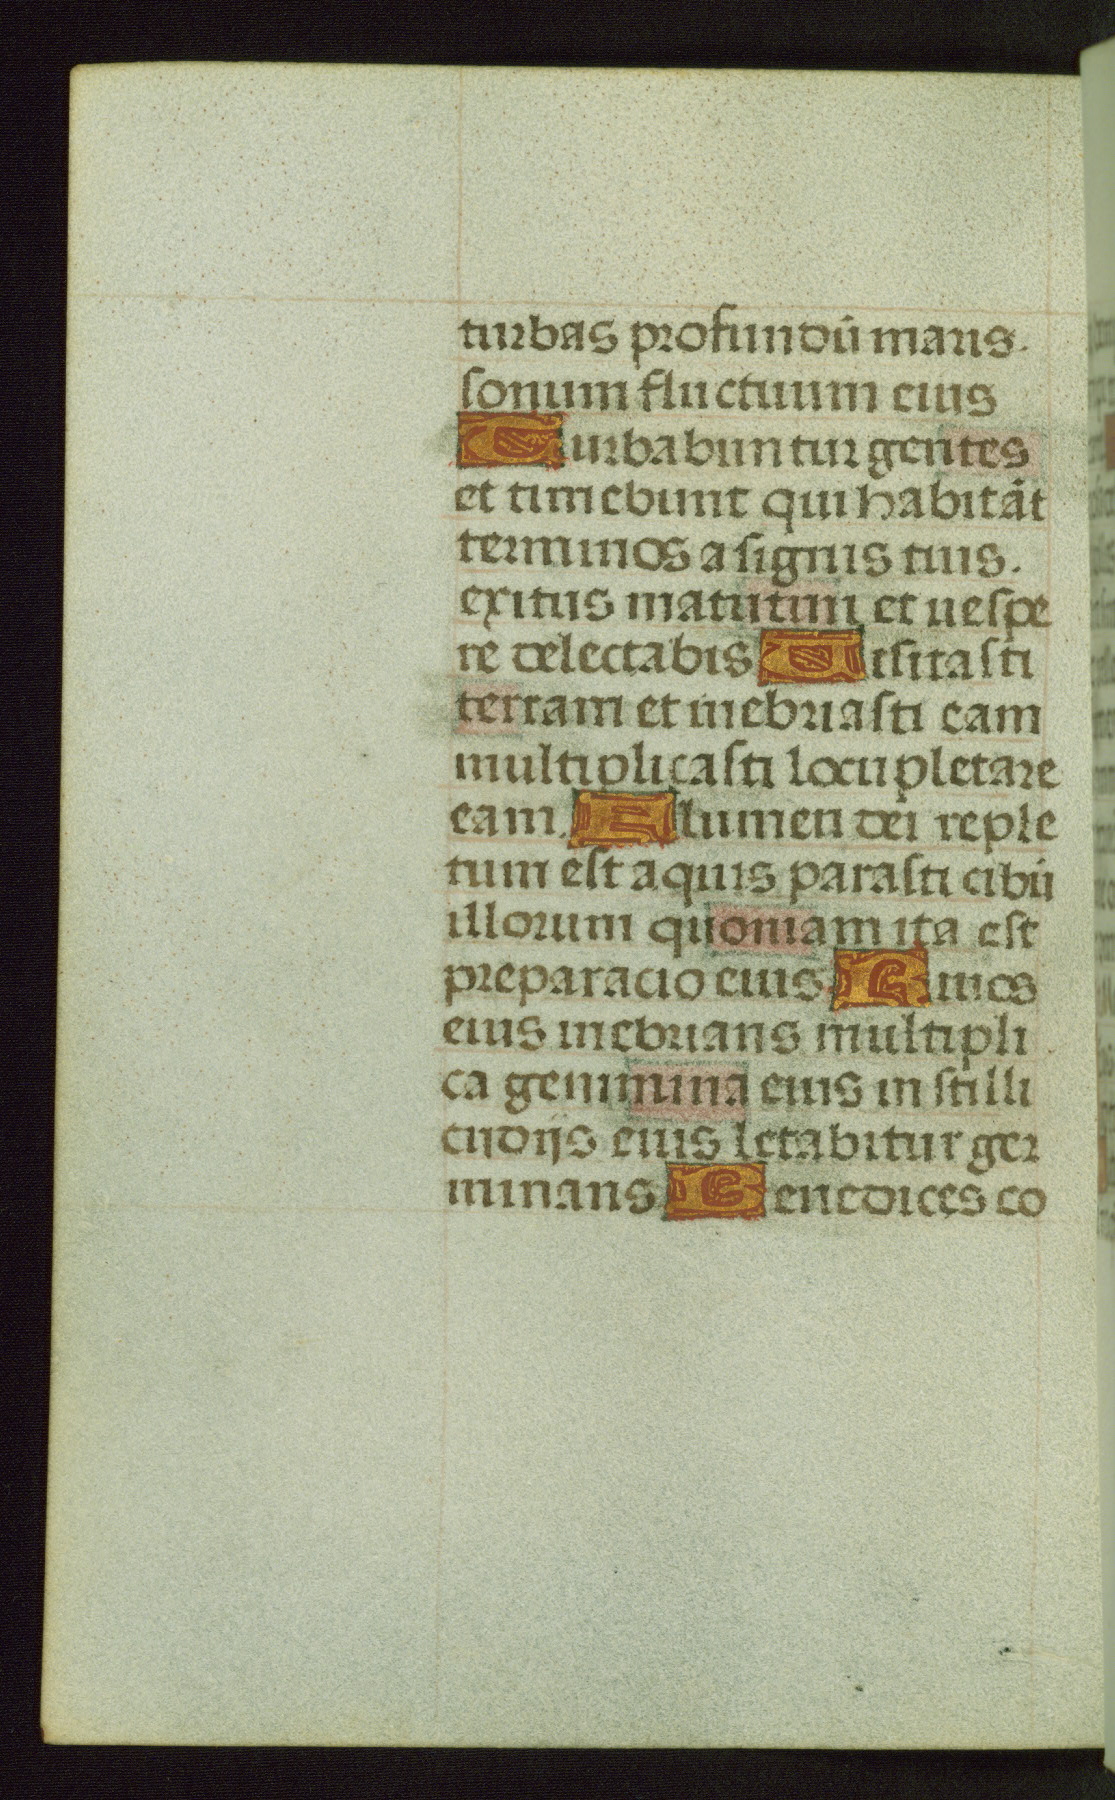 turbas profundū maris.
sonum fluctuum eius
Turbabuntur gentes
et timebunt qui habitāt
terminos a signis tuis.
exitus matutini et uespe
re delectabis Uisitasti
terram et inebriasti eam
multiplicasti locupletare
eam. Flumen dei reple
tum est aquis parasti cibū
illorum quoniam ita est
preparacio eius. Riuos
eius inebrians multipli
ca genimina eius in stilli
cijdijs eius letabitur ger
minans Benedices co